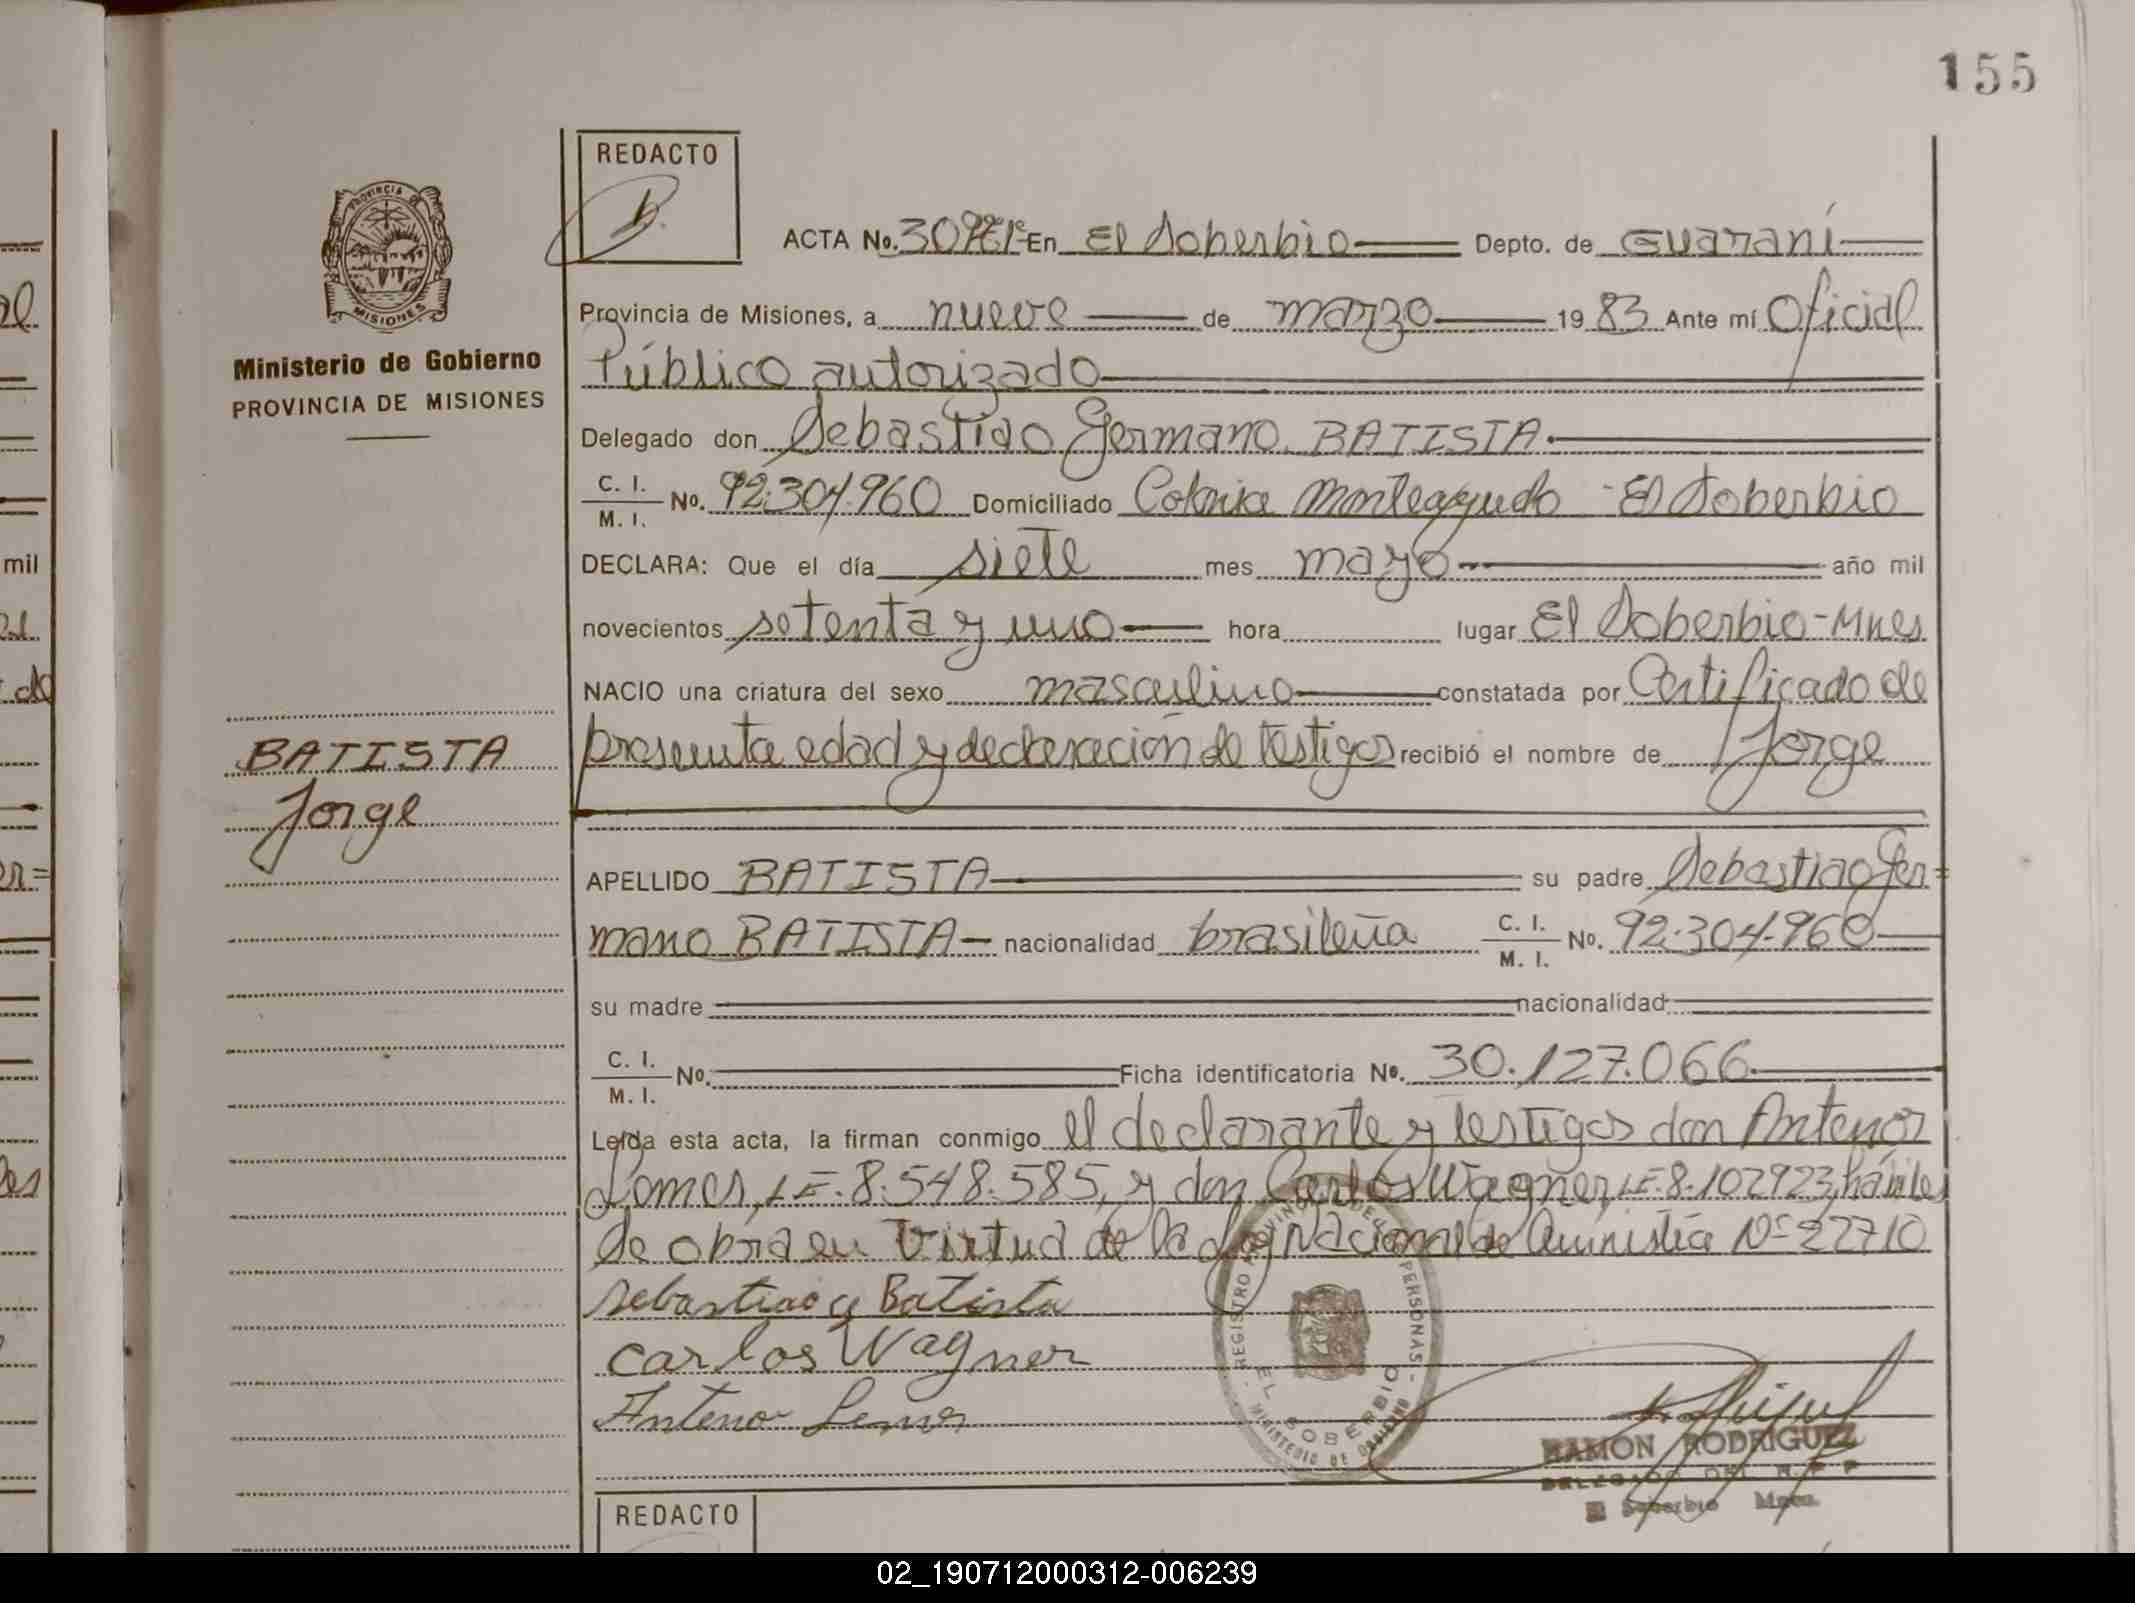 155
REDACTO
PROVINCIA DE
MISIONES
Ministerio de Gobierno
PROVINCIA DE MISIONES
ACTA No. En El Soberbio Depto. de Guaraní
Provincia de Misiones, a nueve de marzo 1983 Ante mí Oficial
Público autorizado
Delegado don Sebastiao Germano BATISTA.
C. I.
M. I. No. 92.304.960 Domiciliado Colonia Monteagudo - El Soberbio
DECLARA: Que el día siete mes mayo año mil
novecientos setenta y uno hora lugar El Soberbio-Mnes
NACIO una criatura del sexo masculino constatada por Certificado de
presunta edad y declaración de testigos recibió el nombre de Jorge
BATISTA
Jorge
APELLIDO BATISTA su padre Sebastiao Ger=
mano BATISTA nacionalidad brasileña C. I. M. I. No. 92.304.960
su madre nacionalidad
C. I.
M. I. No. Ficha identificatoria No. 30.127.066
Leída esta acta, la firman conmigo el declarante y testigos don Antenor
LE. 8.548.585, y don Carlos Wagner, LE. 8.102923, hábiles
de obra en virtud de la Ley Nacional de Aministia Nº 22710
Sebastiao G Batista
Carlos Wagner
Antenor
REGISTRO PROVINCIAL DE PERSONAS
EL SOBERBIO
MINISTERIO DE GOBIERNO
RAMON RODRIGUEZ
DELEGADO DEL R P P
El Soberbio Mnes.
REDACTO
02_190712000312-006239